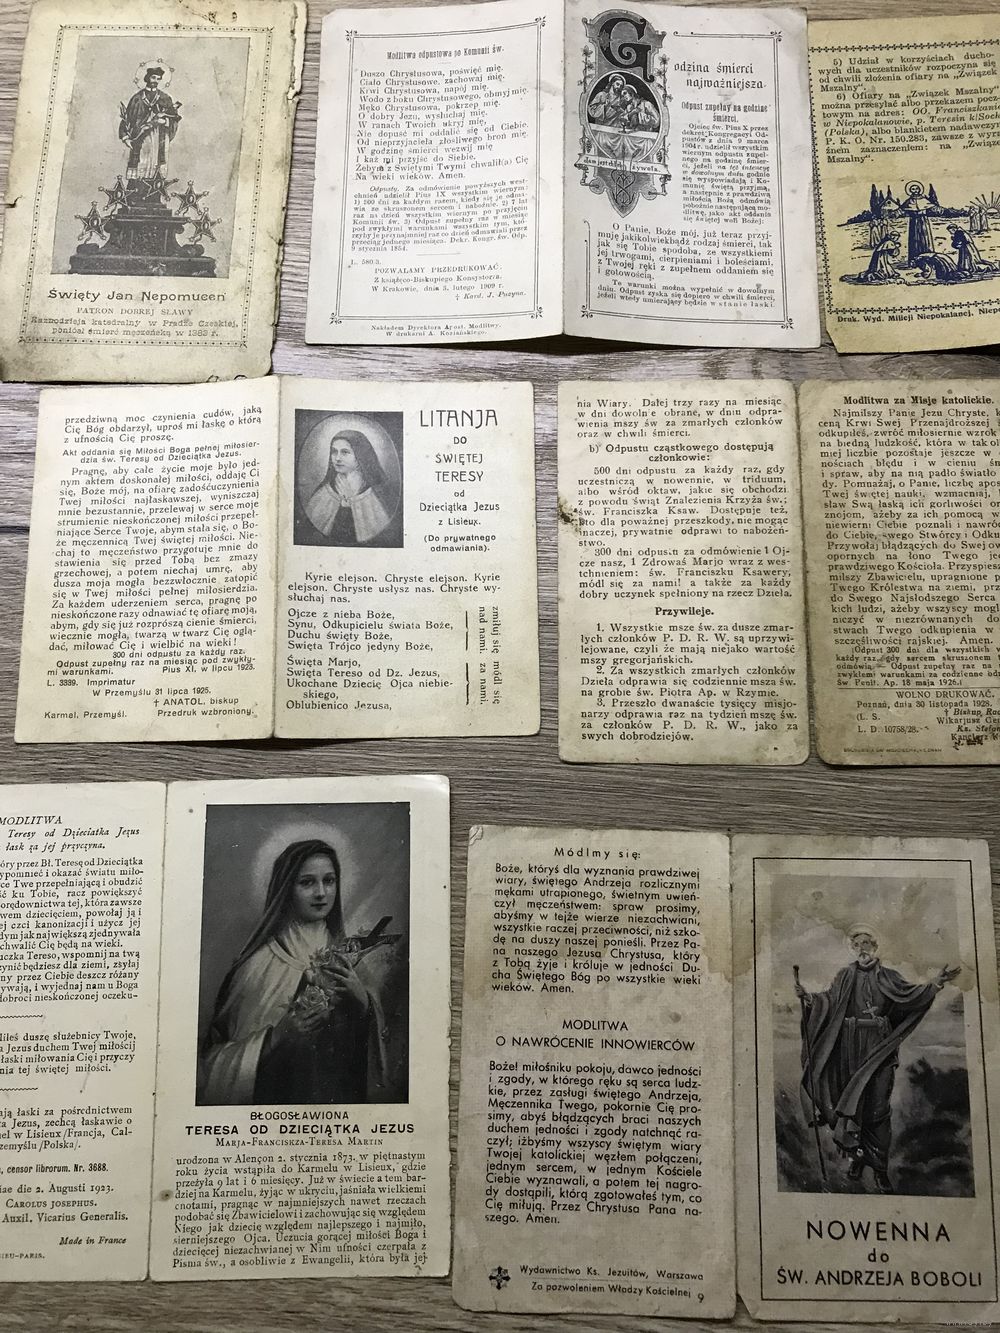 Święty Jan Nepomucen
PATRON DOBREJ SŁAWY
Kaznodzieja katedralny w Pradze Czeskiej,
poniósł śmierć męczeńską w 1383 r.
Modlitwa odpustowa po Komunii św.
Duszo Chrystusowa, poświęć mię.
Ciało Chrystusowe, zachowaj mię.
Krwi Chrystusowa, napój mię.
Wodo z boku Chrystusowego, obmyj mię.
Męko Chrystusowa, pokrzep mię.
O dobry Jezu, wysłuchaj mię.
W ranach Twoich ukryj mię,
Nie dopuść mi oddalić się od Ciebie.
Od nieprzyjaciela złośliwego broń mię.
W godzinę śmierci wezwij mię
I każ mi przyjść do Siebie.
Żebym z Świętymi Twymi chwalił(a) Cię
Na wieki wieków. Amen.
Odpusty. Za odmówienie powyższych west-
chnień udzielił Pius IX wszystkim wiernym:
1) 300 dni za każdym razem, kiedy się je odma-
wia ze skruszonem sercem i nabożnie. 2) 7 lat
raz na dzień wszystkim wiernym po przyjęciu
Komunii św. 3) Odpust zupełny raz w miesiąc
pod zwykłymi warunkami wszystkim tym, któ-
rzyby je przynajmniej raz co dzień odmawiali przez
przeciąg jednego miesiąca. Dekr. Kongr. św. Odp.
9 stycznia 1854.
L. 580.3.
POZWALAMY PRZEDRUKOWAĆ.
Z książęco-Biskupiego Konsystorza.
W Krakowie, dnia 3. lutego 1909 r.
† Kard. J. Puzyna.
Nakładem Dyrektora Apost. Modlitwy.
W drukarni A. Koziańskiego.
G
odzina śmierci
najważniejsza.
Odpust zupełny na godzinę
śmierci.
Ojciec św. Pius X przez
dekret Kongregacyi Od-
pustów z dnia 9 marca
1904 r. udzielił wszystkim
wiernym odpustu zupeł-
nego na godzinę śmierci,
jeżeli na tę intencyę
w dowolnym dniu godnie
się wyspowiadają i Ko-
munię świętą przyjmą,
a następnie z prawdziwą
miłością Bożą odmówią
pobożnie następującą mo-
dlitwę, jako akt oddania
się świętej woli Bożej:
O Panie, Boże mój, już teraz przyj-
muję jakikolwiekbądź rodzaj śmierci, tak
jak się Tobie spodoba, ze wszystkiemi
jej trwogami, cierpieniami i boleściami,
z Twojej ręki z zupełnem oddaniem się
i gotowością.
Te warunki można wypełnić w dowolnym
dniu. Odpust zyska się dopiero w chwili śmierci,
jeżeli wtedy umierający będzie w stanie łaski.
5) Udział w korzyściach ducho-
wych dla uczestników rozpoczyna się
od chwili złożenia ofiary na „Związek
Mszalny”
6) Ofiary na „Związek Mszalny”
można przesyłać albo przekazem pocz-
towym na adres: OO. Franciszkanie
w Niepokalanowie, p. Teresin k/Soch
(Polska), albo blankietem nadawczym
P. K. O. Nr. 150.283, zawsze z wyra-
źnem zaznaczeniem: na „Związe
Mszalny”.
Druk. Wyd. Milicji Niepokalanej, Niepo
przedziwną moc czynienia cudów, jaką
Cię Bóg obdarzył, uproś mi łaskę o którą
z ufnością Cię proszę.
Akt oddania się Miłości Boga pełnej miłosier-
dzia św. Teresy od Dzieciątka Jezus.
Pragnę, aby całe życie moje było jed-
nym aktem doskonałej miłości, oddaję Ci
się, Boże mój, na ofiarę zadośćuczynienia
Twej miłości najłaskawszej, wyniszczaj
mnie bezustannie, przelewaj w serce moje
strumienie nieskończonej miłości przepeł-
niające Serce Twoje, abym stała się, o Bo-
że męczennicą Twej świętej miłości. Nie-
chaj to męczeństwo przygotuje mnie do
stawienia się przed Tobą bez zmazy
grzechowej, a potem niechaj umrę, aby
dusza moja mogła bezzwłocznie zatopić
się w Twej miłości pełnej miłosierdzia.
Za każdem uderzeniem serca, pragnę po
nieskończone razy odnawiać tę ofiarę moją,
abym, gdy się już rozproszą cienie śmierci,
wiecznie mogła, twarzą w twarz Cię oglą-
dać, miłować Cię i wielbić na wieki!
300 dni odpustu za każdy raz.
Odpust zupełny raz na miesiąc pod zwykły-
mi warunkami. Pius XI, w lipcu 1923.
L. 3339. Imprimatur
W Przemyślu 31 lipca 1925.
† ANATOL, biskup
Karmel. Przemyśl. Przedruk wzbroniony.
LITANJA
DO
ŚWIĘTEJ
TERESY
od
Dzieciątka Jezus
z Lisieux.
(Do prywatnego
odmawiania).
Kyrie elejson. Chryste elejson. Kyrie
elejson. Chryste usłysz nas. Chryste wy-
słuchaj nas.
Ojcze z nieba Boże,
Synu, Odkupicielu świata Boże,
Duchu święty Boże,
Święta Trójco jedyny Boże,
zmiłuj się
nad nami.
Święta Marjo,
Święta Tereso od Dz. Jezus,
Ukochane Dziecię Ojca niebie-
skiego,
Oblubienico Jezusa,
módl się
za nami.
nia Wiary. Dalej trzy razy na miesiąc
w dni dowolnie obrane, w dniu odpra-
wienia mszy św za zmarłych członków
oraz w chwili śmierci.
b) Odpustu cząstkowego dostępują
członkowie:
500 dni odpustu za każdy raz, gdy
uczestniczą w nowennie, w triduum,
albo wśród oktaw, jakie się obchodzi
z powodu świąt Znalezienia Krzyża św.;
św. Franciszka Ksaw. Dostępuje też,
kto dla poważnej przeszkody, nie mogąc
inaczej, prywatnie odprawi to nabożeń-
stwo.
300 dni odpustu za odmówienie 1 Oj-
cze nasz, 1 Zdrowaś Marjo wraz z wes-
tchnieniem: św. Franciszku Ksawery,
módl się za nami! a także za każdy
dobry uczynek spełniony na rzecz Dzieła.
Przywileje.
1. Wszystkie msze św. za dusze zmar-
łych członków P. D. R. W. są uprzywi-
lejowane, czyli że mają niejako wartość
mszy gregorjańskich.
2. Za wszystkich zmarłych członków
Dzieła odprawia się codziennie msza św.
na grobie św. Piotra Ap. w Rzymie.
3. Przeszło dwanaście tysięcy misjo-
narzy odprawia raz na tydzień mszę św.
za członków P. D. R. W., jako za
swych dobrodziejów.
Modlitwa za Misje katolickie.
Najmilszy Panie Jezu Chryste, k
ceną Krwi Swej Przenajdroższej ś
odkupiłeś, zwróć miłosiernie wzrok
na biedną ludzkość, która w tak ol
miej liczbie pozostaje jeszcze w
nościach błędu i w cieniu śn
i spraw, aby na nią padło światło
dy. Pomnażaj, o Panie, liczbę apost
Twej świętej nauki, wzmacniaj,
sław Swą łaską ich gorliwości or
znojom, ażeby za ich pomocą w
niewierni Ciebie poznali i nawró
do Ciebie, swego Stwórcy i Odku
Przywołaj błądzących do Swej ow
opornych na łono Twego je
prawdziwego Kościoła. Przyspiesz
milszy Zbawicielu, upragnione p
Twego Królestwa na ziemi, prz
do Swego Najsłodszego Serca
kich ludzi, ażeby wszyscy mogl
niczyć w niezrównanych do
stwach Twego odkupienia w
szczęśliwości rajskiej. Amen.
(Odpust 300 dni dla wszystkich
każdy raz, gdy sercem skruszonem
odmówią. — Odpust zupełny raz na
zwykłemi warunkami za codzienne od
Św. Penit. Ap. 18 maja 1926.)
WOLNO DRUKOWAĆ.
Poznań, dnia 30 listopada 1928.
† Biskup Rad
(L. S. Wikarjusz Gen
Ks. Stefan
L. D. 10758/28. Kanclerz K
MODLITWA
Teresy od Dzieciątka Jezus
łask za jej przyczyną.
óry przez Bł. Teresę od Dzieciątka
ypomnieć i okazać światu miło-
ce Twe przepełniającą i obudzić
ść ku Tobie, racz powiększyć
orędownictwa tej, która zawsze
wem dziecięciem, powołaj ją i
ej czci kanonizacji i użycz jej
dym jak największą zjednywała
chwalić Cię będą na wieki.
uczka Tereso, wspomnij na twą
zynić będziesz dla ziemi, zsyłaj
ny przez Ciebie deszcz różany
ywają, i wyjednaj nam u Boga
dobroci nieskończonej oczeku-
liłeś duszę służebnicy Twoje,
a Jezus duchem Twej miłośçij
łaski miłowania Cię i przyczy
nia tej świętej miłości.
ają łaski za pośrednictwem
ta Jezus, zechcą łaskawie o
nel w Lisieux /Francja, Cal-
zemyślu /Polska/.
, censor librorum. Nr. 3688.
iae die 2. Augusti 1923.
CAROLUS JOSEPHUS.
Auxil. Vicarius Generalis.
Made in France
IEU-PARIS.
BŁOGOSŁAWIONA
TERESA OD DZIECIĄTKA JEZUS
MARJA-FRANCISZKA-TERESA MARTIN
urodzona w Alençon 2. stycznia 1873. w piętnastym
roku życia wstąpiła do Karmelu w Lisieux, gdzie
przeżyła 9 lat i 6 miesięcy. Już w świecie a tem bar-
dziej na Karmelu, żyjąc w ukryciu, jaśniała wielkiemi
cnotami, pragnąc w najmniejszych nawet rzeczach
podobać się Zbawicielowi i zachowując się względem
Niego jak dziecię względem najlepszego i najmiło,
sierniejszego Ojca. Uczucia gorącej miłości Boga i
dziecięcej niezachwianej w Nim ufności czerpała z
Pisma św., a osobliwie z Ewangelii, która była jej
Módlmy się:
Boże, któryś dla wyznania prawdziwej
wiary, świętego Andrzeja rozlicznymi
mękami utrapionego, świetnym uwień-
czył męczeństwem: spraw prosimy,
abyśmy w tejże wierze niezachwiani,
wszystkie raczej przeciwności, niż szko-
dę na duszy naszej ponieśli. Przez Pa-
na naszego Jezusa Chrystusa, który
z Tobą żyje i króluje w jedności Du-
cha Świętego Bóg po wszystkie wieki
wieków. Amen.
MODLITWA
O NAWRÓCENIE INNOWIERCÓW
Boże! miłośniku pokoju, dawco jedności
i zgody, w którego ręku są serca ludz-
kie, przez zasługi świętego Andrzeja,
Męczennika Twego, pokornie Cię pro-
simy, abyś błądzących braci naszych
duchem jedności i zgody natchnąć ra-
czył; iżbyśmy wszyscy świętym wiary
Twojej katolickiej węzłem połączeni,
jednym sercem, w jednym Kościele
Ciebie wyznawali, a potem tej nagro-
dy dostąpili, którą zgotowałeś tym, co
Cię miłują. Przez Chrystusa Pana na-
szego. Amen.
Wydawnictwo Ks. Jezuitów, Warszawa
Za pozwoleniem Władzy Kościelnej 9
NOWENNA
do
ŚW. ANDRZEJA BOBOLI